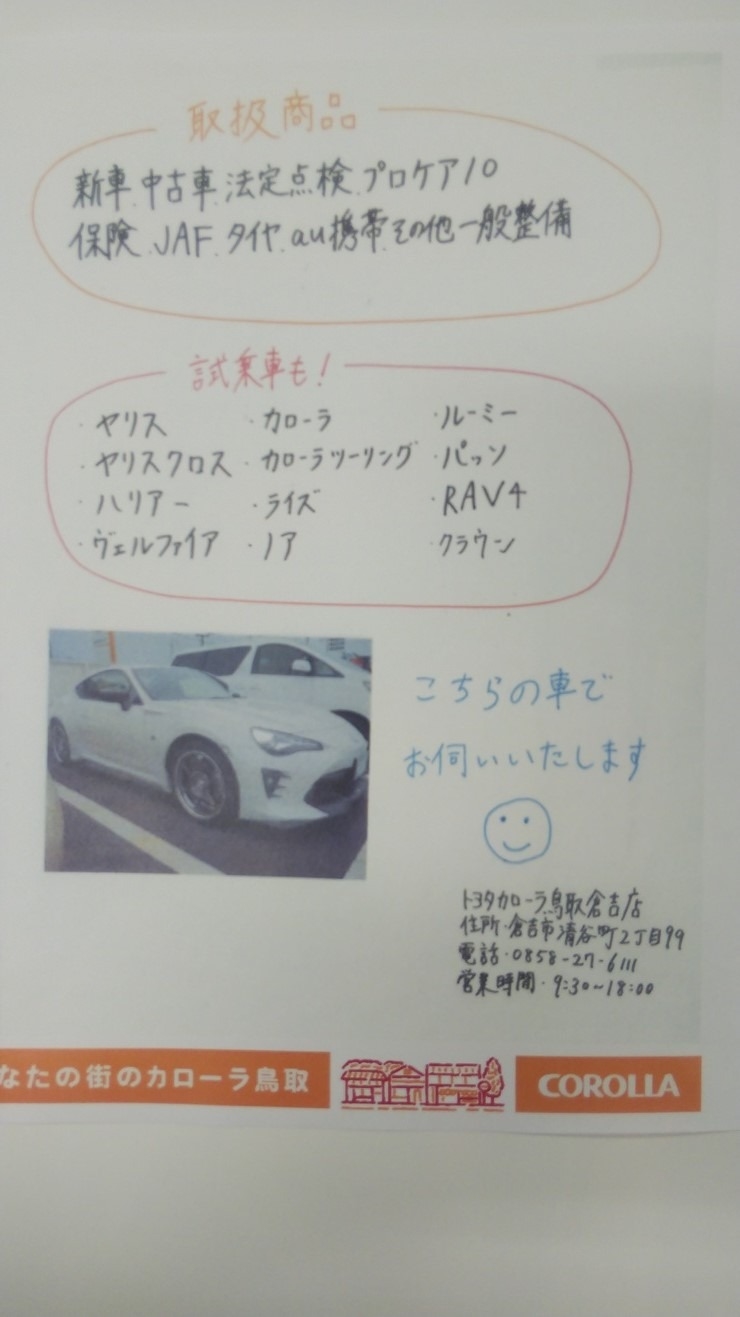 取扱商品
新車.中古車.法定点検.プロケア10
保険.JAF.タイヤ.au携帯.その他一般整備
試乗車も!
・ヤリス ・カローラ ・ルーミー
・ヤリスクロス ・カローラツーリング ・パッソ
・ハリアー ・ライズ ・RAV4
・ヴェルファイア ・ノア ・クラウン
こちらの車で
お伺いいたします
トヨタカローラ鳥取倉吉店
住所・倉吉市清谷町2丁目99
電話・0858-27-6111
営業時間・9:30~18:00
なたの街のカローラ鳥取
COROLLA